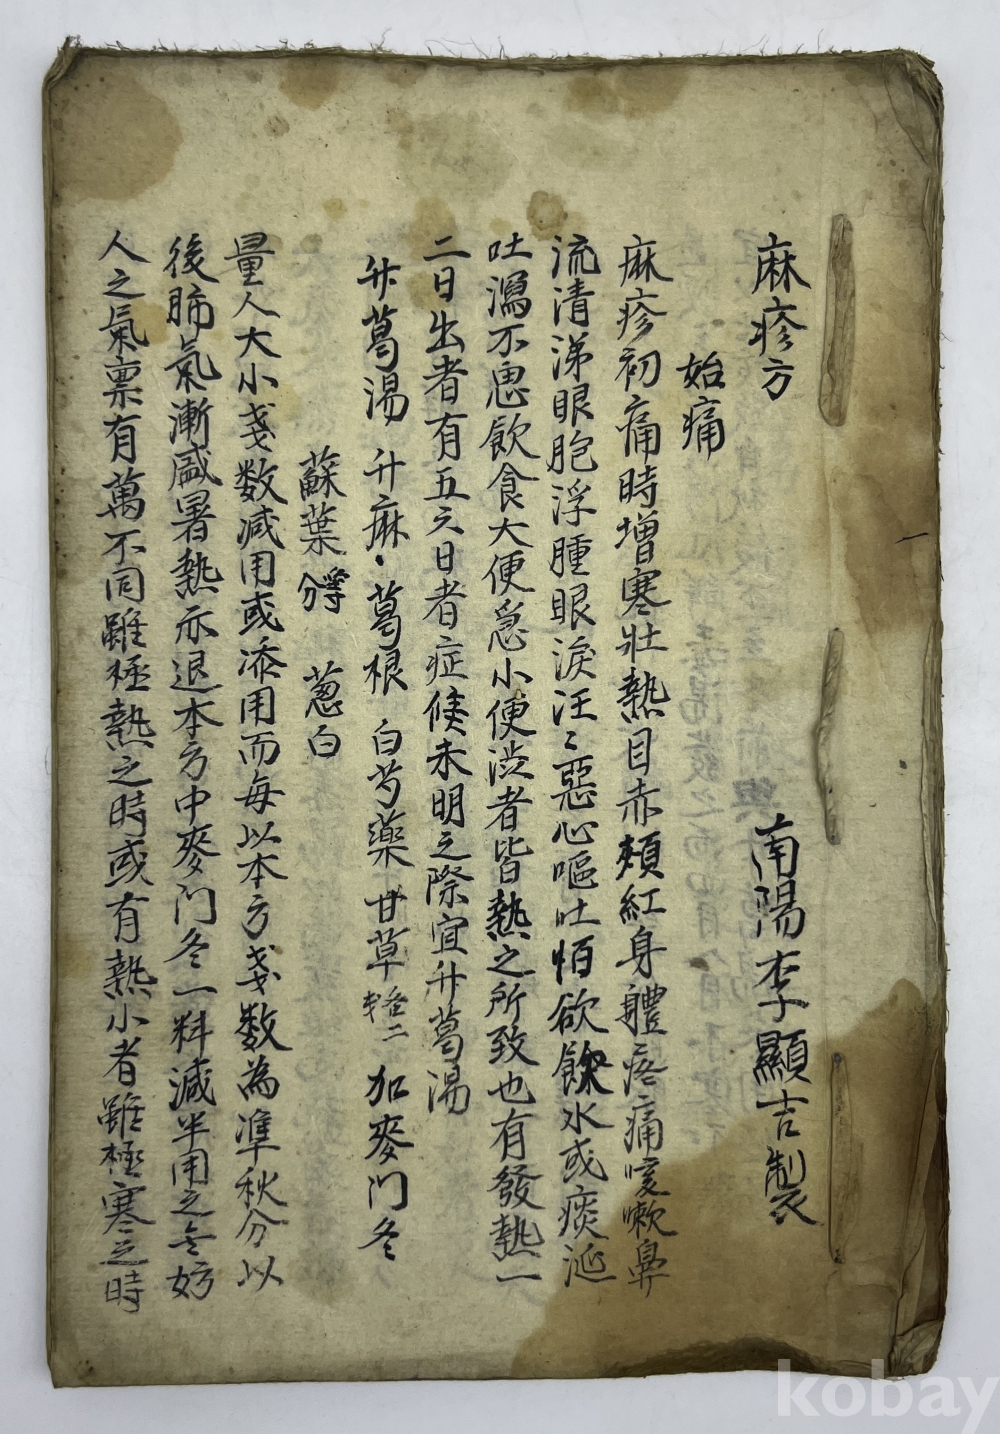 麻疹方 南陽李顯吉製
始痛
麻疹初痛時增寒壯熱目赤頰紅身體疼痛咳嗽鼻
流清涕眼胞浮腫眼淚汪〻惡心嘔吐怕欲飲水或痰涎
吐瀉不思飲食大便急小便澁者皆熱之所致也有發熱一
二日出者有五六日者症候未明之際宜升葛湯
升葛湯 升麻、葛根 白芍藥 甘草 加麥門冬
蘇葉 葱白
量人大小戔数减用或添用而每以本方戔数為準秋分以
後肺氣漸減暑熱亦退本方中麥门冬一料減半用之無妨
人之氣稟有萬不同雖極熱之時或有熱小者雖極寒之時
kobay